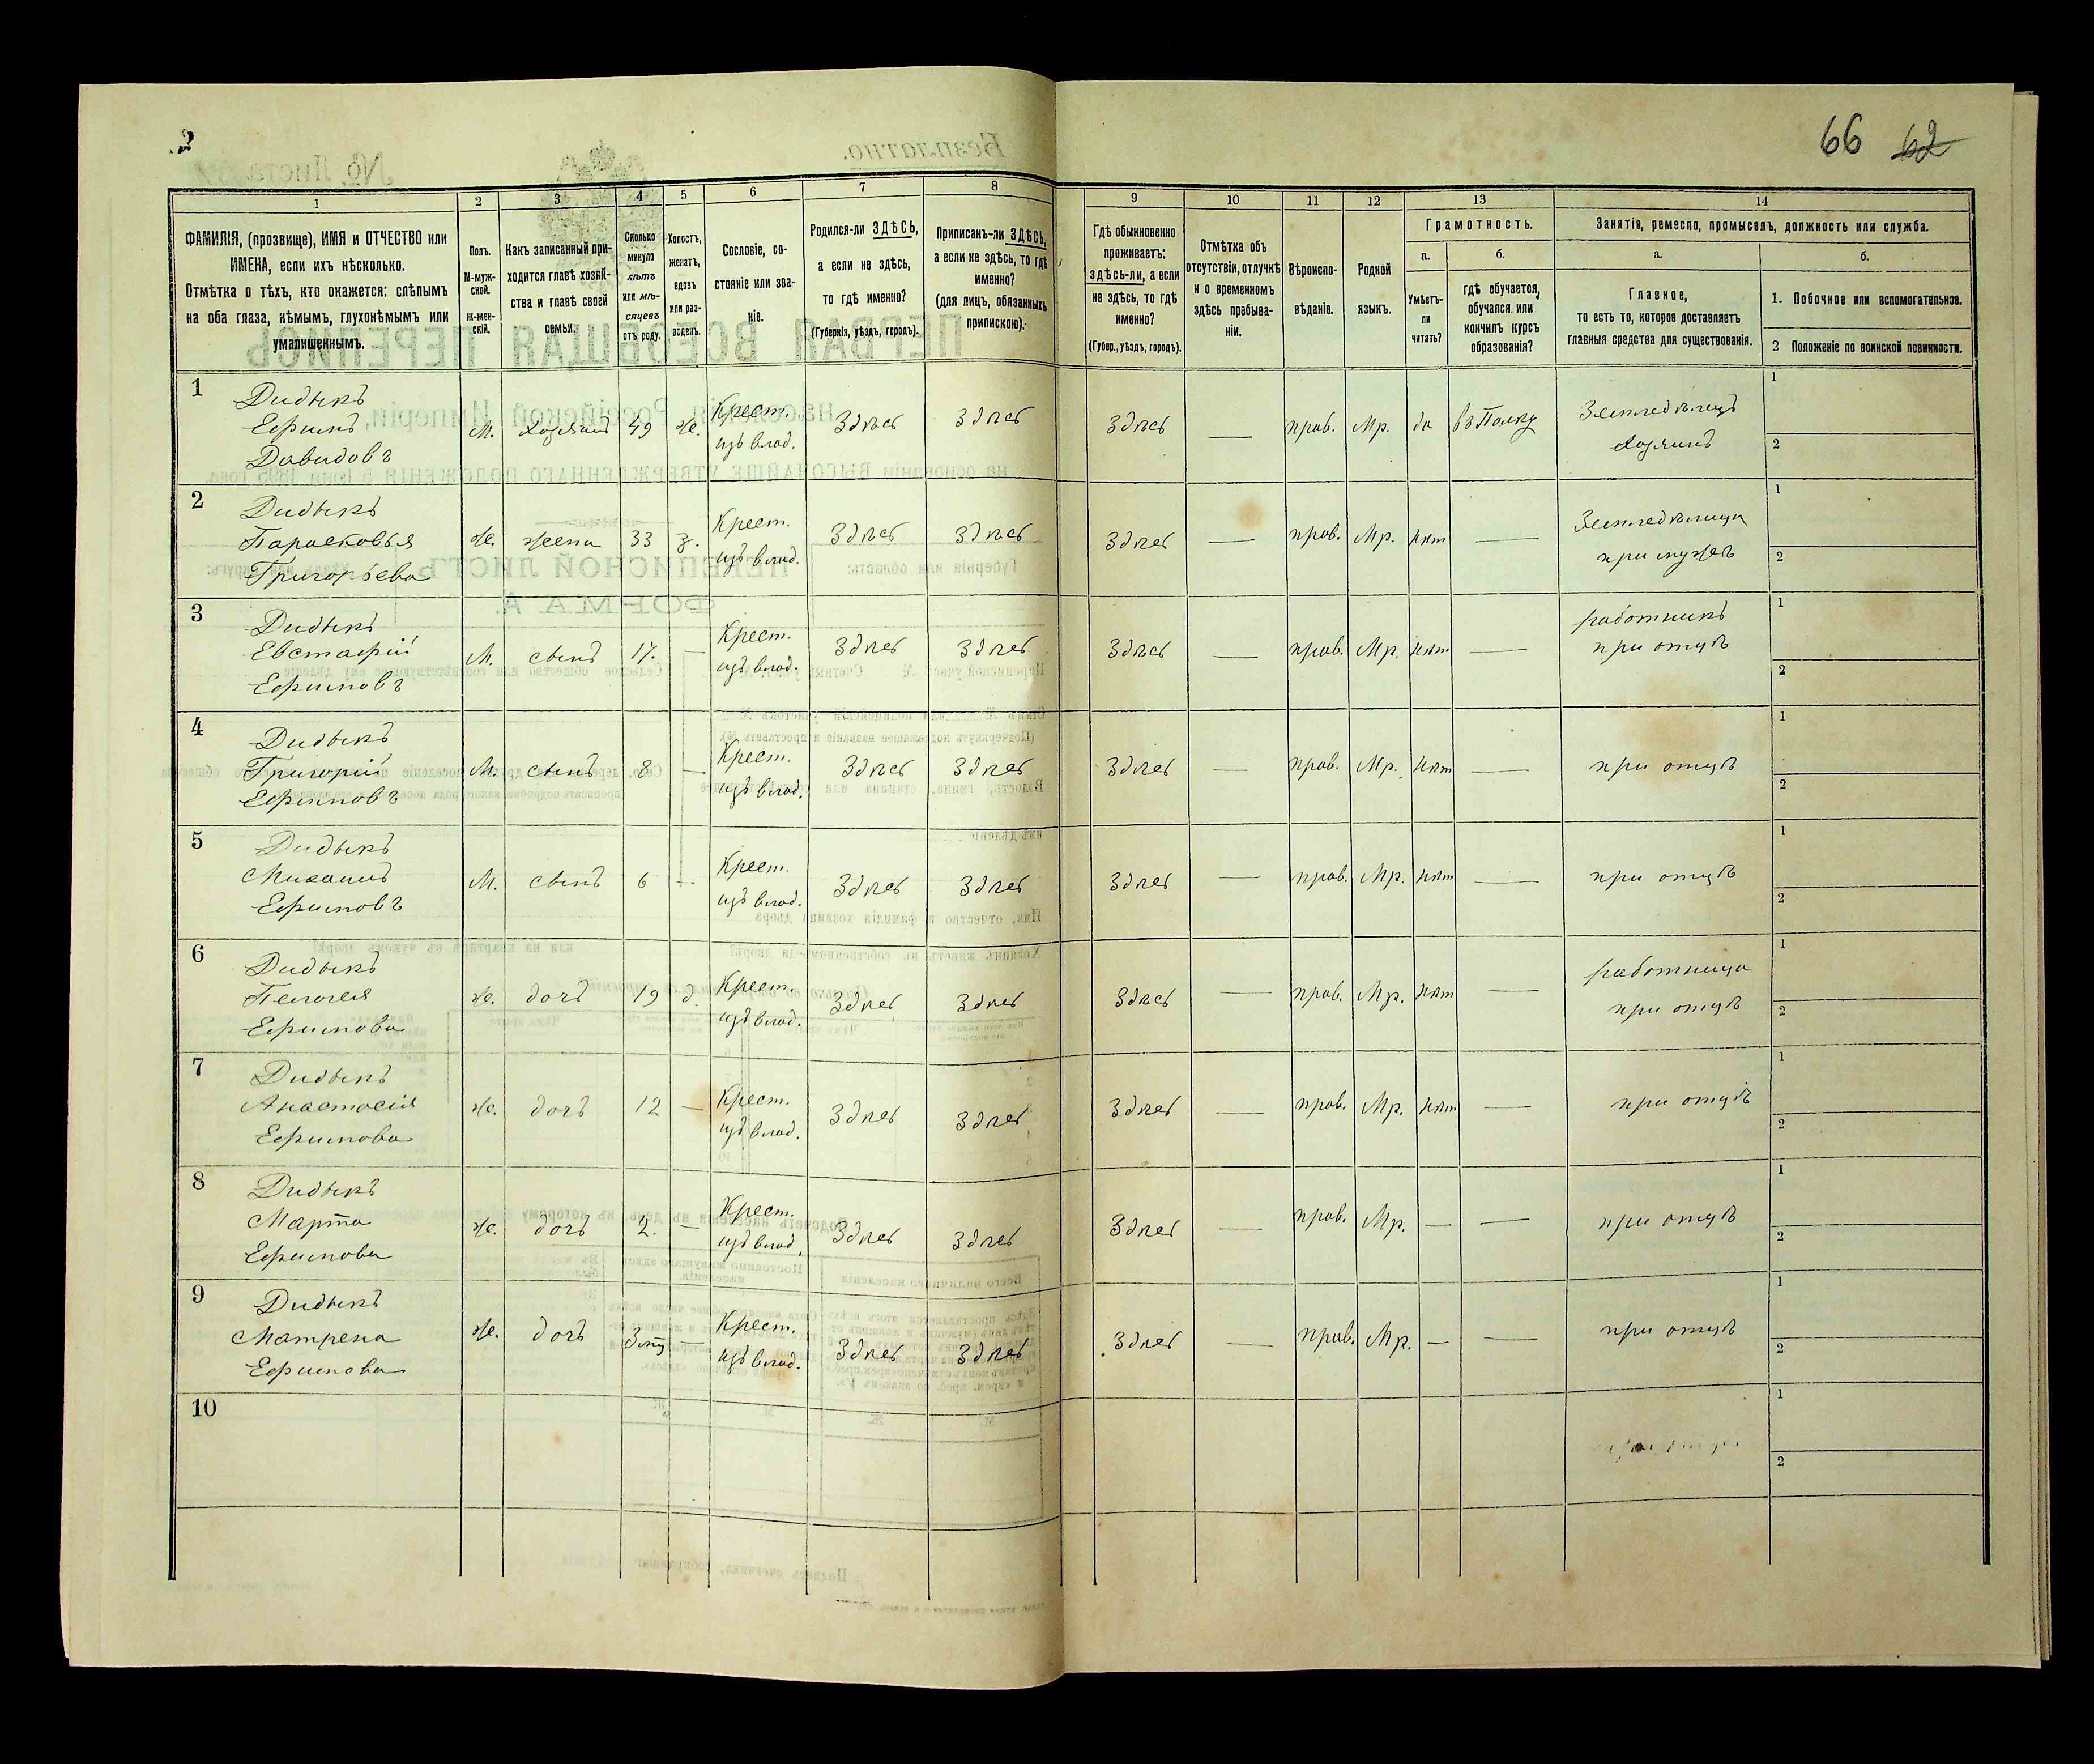 2
66 62
1
2
3
4
5
6
7
8
9
10
11
12
13
14
ФАМИЛІЯ, (прозвище), ИМЯ и ОТЧЕСТВО или
ИМЕНА, если ихъ нѣсколько.
Отмѣтка о тѣхъ, кто окажется: слѣпымъ
на оба глаза, нѣмымъ, глухонѣмымъ или
умалишеннымъ.
Полъ.
М-муж-
ской.
ж-жен-
скій.
Какъ записанный при-
ходится главѣ хозяй-
ства и главѣ своей
семьи.
Сколько
минуло
лѣтъ
или мѣ-
сяцевъ
отъ роду.
Холостъ,
женатъ,
вдовъ
или раз-
веденъ.
Сословіе, со-
стояніе или зва-
ніе.
Родился-ли ЗДѢСЬ,
а если не здѣсь,
то гдѣ именно?
(Губернія, уѣздъ, городъ).
Приписанъ-ли ЗДѢСЬ,
а если не здѣсь, то гдѣ
именно?
(для лицъ, обязанныхъ
припискою).
Гдѣ обыкновенно
проживаетъ:
здѣсь-ли, а если
не здѣсь, то гдѣ
именно?
(Губер., уѣздъ, городъ).
Отмѣтка объ
отсутствіи, отлучкѣ
и о временномъ
здѣсь пребыва-
ніи.
Вѣроиспо-
вѣданіе.
Родной
языкъ.
Грамотность.
а.
Умѣетъ-
ли
читать?
б.
гдѣ обучается,
обучался или
кончилъ курсъ
образованія?
Занятія, ремесло, промыселъ, должность или служба.
а.
Главное,
то есть то, которое доставляетъ
главныя средства для существованія.
б.
1. Побочное или вспомогательное.
2 Положеніе по воинской повинности.
1
Дидыкъ
Ефимъ
Давидовъ
М. хозяинъ 49 ж.
Крест.
изъ влад.
Здѣсь Здѣсь Здѣсь — прав. Мр. да въ Полку
Земледѣлецъ
хозяинъ
1
2
2
Дидыкъ
Парасковья
Григорьева
ж. жена 33 з.
Крест.
изъ влад.
Здѣсь Здѣсь Здѣсь — прав. Мр. нѣт —
Земледѣлица
при мужѣ
1
2
3
Дидыкъ
Евстафій
Ефимовъ
М. сынъ 17. —
Крест.
изъ влад.
Здѣсь Здѣсь Здѣсь — прав. Мр. нѣт —
работникъ
при отцѣ
1
2
4
Дидыкъ
Григорій
Ефимовъ
М. сынъ 8 —
Крест.
изъ влад.
Здѣсь Здѣсь Здѣсь — прав. Мр. нѣт —
при отцѣ
1
2
5
Дидыкъ
Михаилъ
Ефимовъ
М. сынъ 6 —
Крест.
изъ влад.
Здѣсь Здѣсь Здѣсь — прав. Мр. нѣт —
при отцѣ
1
2
6
Дидыкъ
Пелагея
Ефимова
ж. дочь 19 д.
Крест.
изъ влад.
Здѣсь Здѣсь Здѣсь — прав. Мр. нѣт —
работница
при отцѣ
1
2
7
Дидыкъ
Анастасія
Ефимова
ж. дочь 12 —
Крест.
изъ влад.
Здѣсь Здѣсь Здѣсь — прав. Мр. нѣт —
при отцѣ
1
2
8
Дидыкъ
Марта
Ефимова
ж. дочь 2. —
Крест.
изъ влад.
Здѣсь Здѣсь Здѣсь — прав. Мр. — —
при отцѣ
1
2
9
Дидыкъ
Матрена
Ефимова
ж. дочь —
Крест.
изъ влад.
Здѣсь Здѣсь Здѣсь — прав. Мр. — —
при отцѣ
1
2
10
1
2